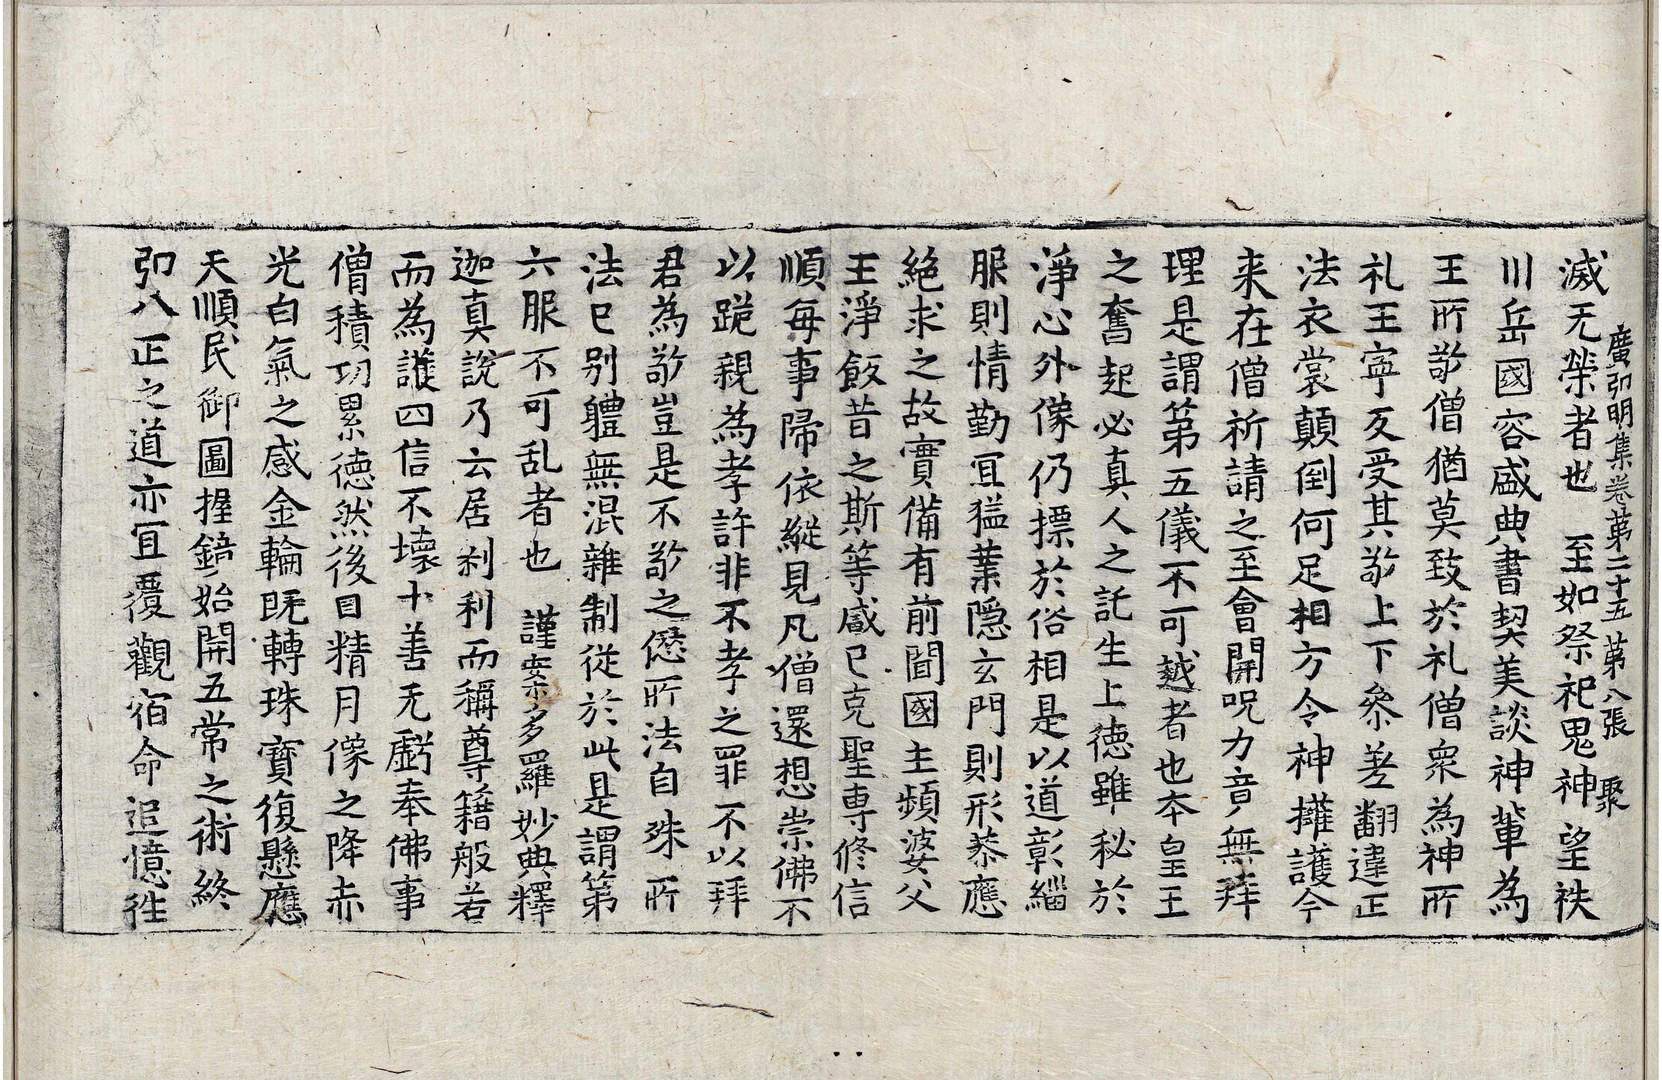 廣弘明集卷第二十五 第八張 聚
滅无榮者也 至如祭祀鬼神望袟
川岳國容盛典書契美談神輩為
王所敬僧猶莫致於礼僧衆為神所
礼王寧反受其敬上下叅差翻違正
法衣裳顛倒何足相方令神擁護今
来在僧祈請之至會開呪力竟無拜
理是謂第五儀不可越者也夲皇王
之奮起必真人之託生上徳雖秘於
淨心外像仍摽於俗相是以道彰緇
服則情勤冝猛業隠玄門則形恭應
絶求之故實備有前聞國主頻婆父
王淨飯昔之斯等咸已克聖専修信
順每事歸依縱見凡僧還想崇佛不
以跪親為孝許非不孝之罪不以拜
君為敬豈是不敬之愆所法自殊所
法已别體無混雜制從於此是謂第
六服不可乱者也 謹案多羅妙典釋
迦真說乃云居刹利而稱尊藉般若
而為護四信不壊十善无虧奉佛事
僧積功累徳然後日精月像之降赤
光白氣之感金輪旣轉珠寶復懸應
天順民御圖握鏡始開五常之術終
弘八正之道亦冝覆觀宿命追憶徃